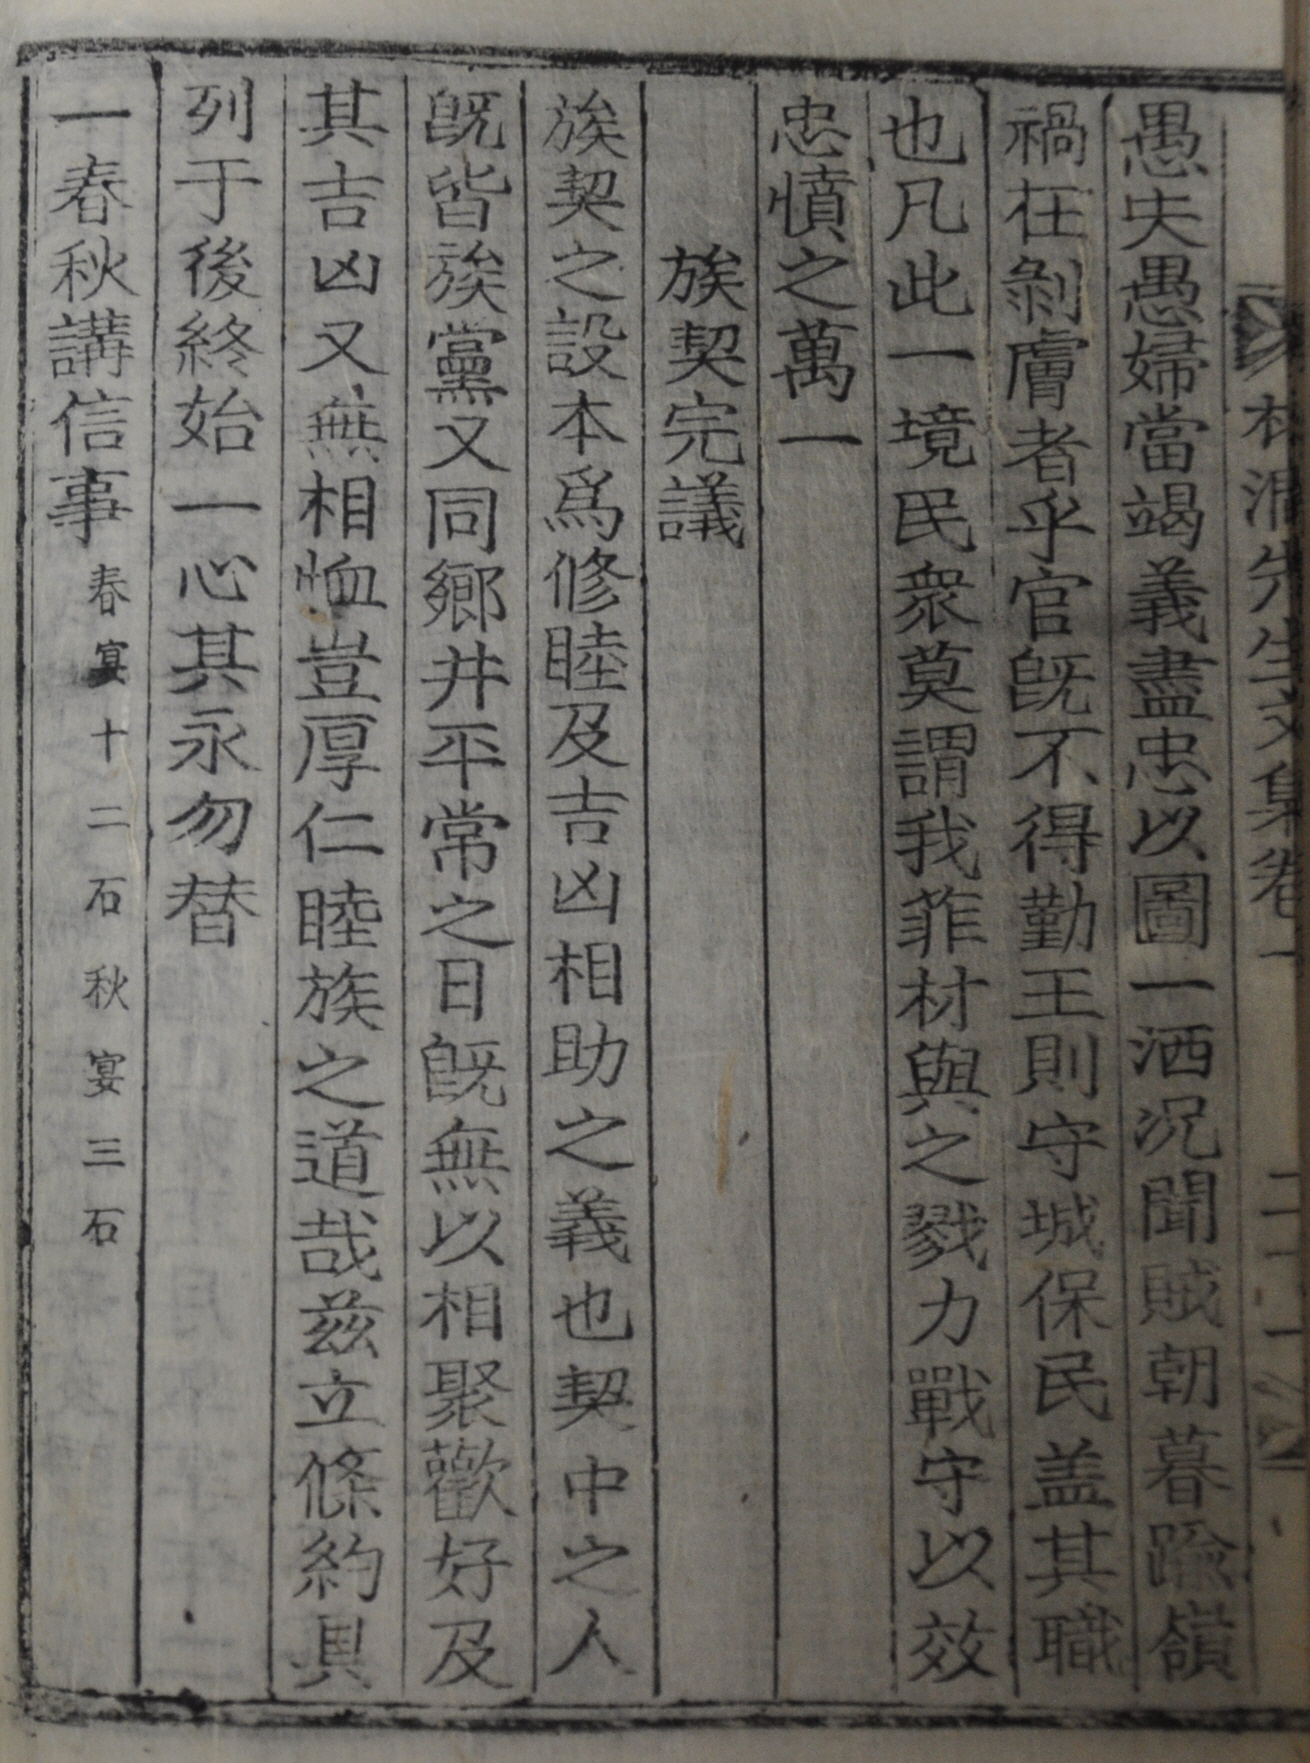 先生文集卷一
愚夫愚婦當竭義盡忠以圖一洒況聞賊朝暮踰嶺
禍在剝膚者乎官旣不得勤王則守城保民盖其職
也凡此一境民衆莫謂我菲材與之戮力戰守以效
忠憤之萬一
族契完議
族契之設本爲修睦及吉凶相助之義也契中之人
旣皆族黨又同鄉井平常之日旣無以相聚歡好及
其吉凶又無相恤豈厚仁睦族之道哉茲立條約具
列于後終始一心其永勿替
一春秋講信事春宴十二石秋宴三石